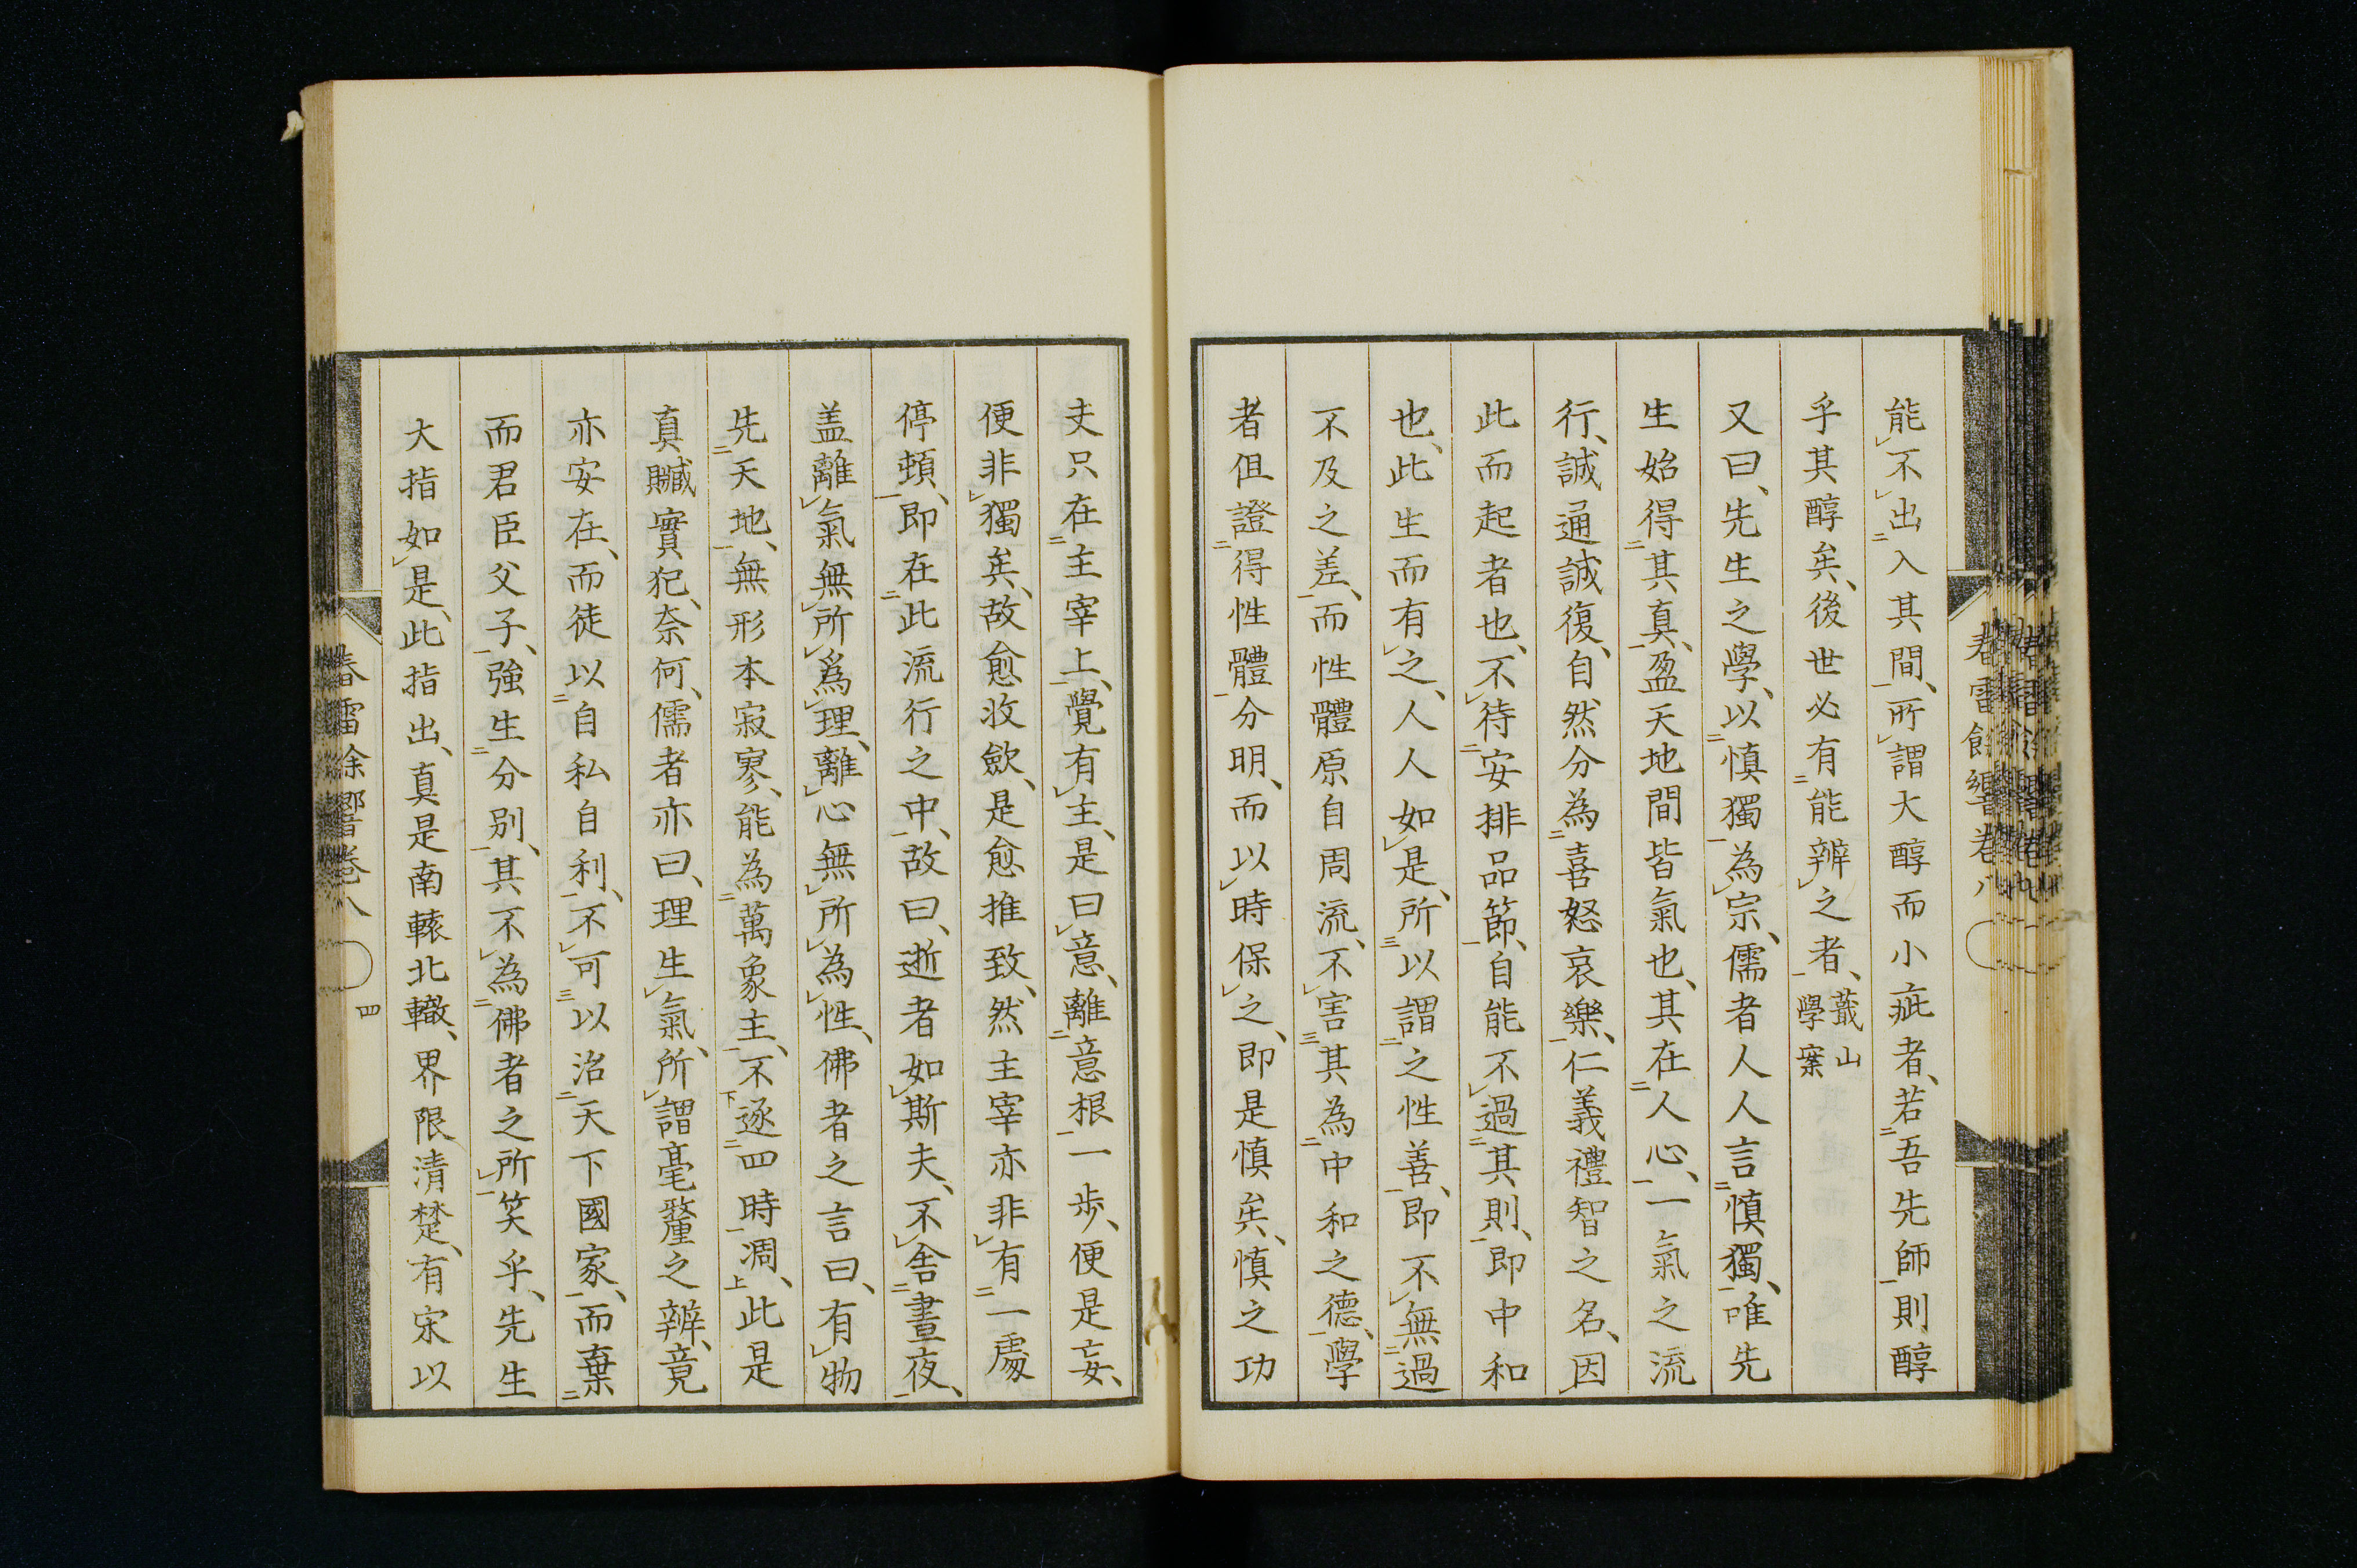 能不出入其間、所謂大醇而小疵者、若吾先師則醇
乎其醇矣、後世必有能辨之者、蕺山學案
又曰、先生之學、以慎獨為宗、儒者人人言慎獨、唯先
生始得其真、盈天地間皆氣也、其在人心、一氣之流
行、誠通誠復、自然分為喜怒哀樂、仁義禮智之名、因
此而起者也、不待安排品節、自能不過其則、即中和
也、此生而有之、人人如是、所以謂之性善、即不無過
不及之差、而性體原自周流、不害其為中和之德、學
者但證得性體分明、而以時保之、即是慎矣、慎之功
夫只在主宰上、覺有主、是曰意、離意根一步、便是妄、
便非獨矣、故愈收斂、是愈推致、然主宰亦非有一處
停頓、即在此流行之中、故曰、逝者如斯夫、不舍晝夜、
盖離氣無所爲理、離心無所為性、佛者之言曰、有物
先天地、無形本寂寥、能為萬象主、不逐四時凋、此是
真贓實犯、奈何、儒者亦曰、理生氣、所謂毫釐之辨、竟
亦安在、而徒以自私自利、不可以治天下國家、而棄
而君臣父子、強生分別、其不為佛者之所笑乎、先生
大指如是、此指出、真是南轅北轍、界限清楚、有宋以
春雷餘響卷八
春雷餘響卷八 四